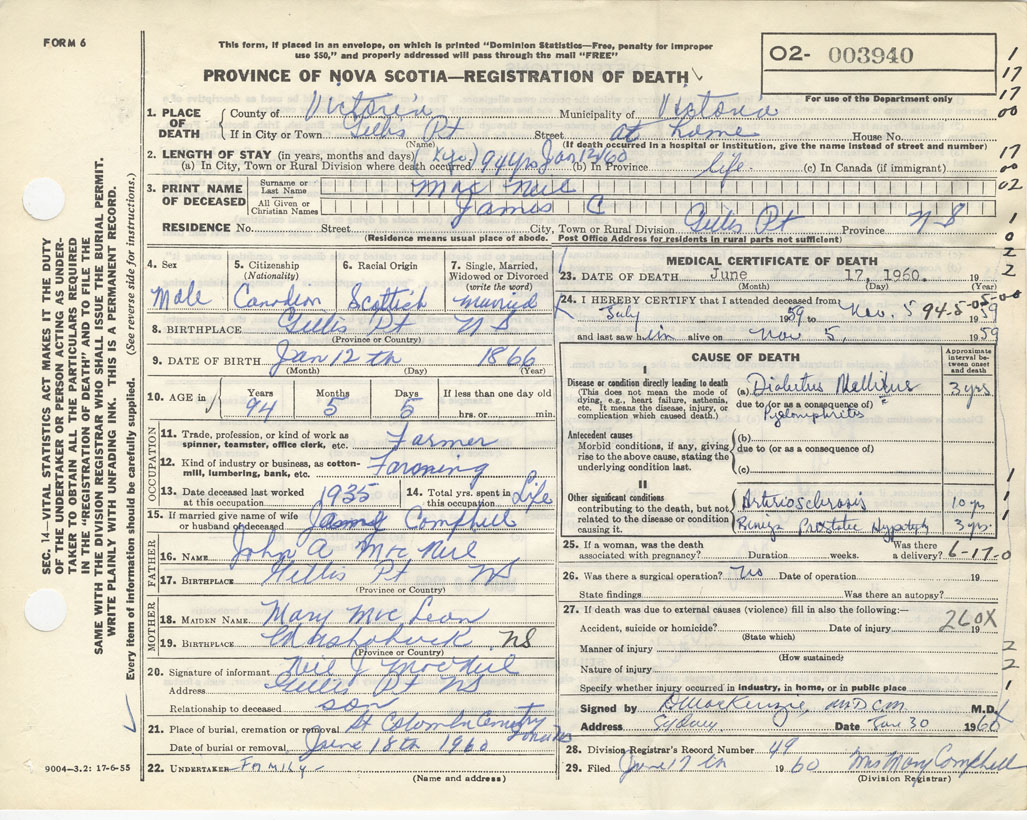 FORM 6
This form, if placed in an envelope, on which is printed "Dominion Statistics—Free, penalty for improper
use $50," and properly addressed will pass through the mail "FREE"
PROVINCE OF NOVA SCOTIA—REGISTRATION OF DEATH
O2- 003940
For use of the Department only
1. PLACE OF DEATH { County of Victoria Municipality of Victoria
If in City or Town Gillis Pt Street at home House No.
(Name) (If death occurred in a hospital or institution, give the name instead of street and number)
2. LENGTH OF STAY (in years, months and days)
(a) In City, Town or Rural Division where death occurred 94 yrs Jan 12/60 (b) In Province life (c) In Canada (if immigrant)
3. PRINT NAME OF DECEASED { Surname or Last Name Mac Neil
All Given or Christian Names James C
RESIDENCE No. Street City, Town or Rural Division Gillis Pt Province N S
(Residence means usual place of abode. Post Office Address for residents in rural parts not sufficient)
4. Sex Male
5. Citizenship (Nationality) Canadian
6. Racial Origin Scottish
7. Single, Married, Widowed or Divorced (write the word) Married
8. BIRTHPLACE Gillis Pt N S
(Province or Country)
9. DATE OF BIRTH Jan 12 th 1866
(Month) (Day) (Year)
10. AGE in Years 94 Months 5 Days 5 If less than one day old hrs. or min.
OCCUPATION
11. Trade, profession, or kind of work as spinner, teamster, office clerk, etc. Farmer
12. Kind of industry or business, as cotton-mill, lumbering, bank, etc. Farming
13. Date deceased last worked at this occupation 1935
14. Total yrs. spent in this occupation Life
15. If married give name of wife or husband of deceased Campbell
FATHER
16. NAME John A Mac Neil
17. BIRTHPLACE Gillis Pt NS
(Province or Country)
MOTHER
18. MAIDEN NAME Mary Mac Lean
19. BIRTHPLACE NS
(Province or Country)
20. Signature of informant Neil J MacNeil
Address Gillis Pt NS
Relationship to deceased son
21. Place of burial, cremation or removal St Columba Cemetry
Date of burial or removal June 18th 1960
22. UNDERTAKER FAMILY
(Name and address)
9004—3.2: 17-6-55
MEDICAL CERTIFICATE OF DEATH
23. DATE OF DEATH June 17, 1960. 19
(Month) (Day) (Year)
24. I HEREBY CERTIFY that I attended deceased from
July 1959 to Nov. 5 1959
94-5-05-00
and last saw him alive on Nov 5, 1959
CAUSE OF DEATH
Approximate interval between onset and death
I
Disease or condition directly leading to death
(This does not mean the mode of dying, e.g., heart failure, asthenia, etc. It means the disease, injury, or complication which caused death.)
(a) Diabetus Mellitus 3 yrs
due to (or as a consequence of)
Antecedent causes
Morbid conditions, if any, giving rise to the above cause, stating the underlying condition last.
(b)
due to (or as a consequence of)
(c)
II
Other significant conditions
contributing to the death, but not related to the disease or condition causing it.
Arteriosclerosis 10 yrs
Benign Prostatic 3 yrs.
25. If a woman, was the death associated with pregnancy? Duration weeks. Was there a delivery? 6-17-0
26. Was there a surgical operation? No Date of operation 19
State findings Was there an autopsy?
27. If death was due to external causes (violence) fill in also the following:—
260X
Accident, suicide or homicide? Date of injury 19
(State which)
Manner of injury
(How sustained)
Nature of injury
Specify whether injury occurred in industry, in home, or in public place
Signed by MacKenzie, MD CM M.D.
Address Sydney Date 30 1960
28. Division Registrar's Record Number 49
29. Filed June 17 th 1960 Mrs Mary Campbell
(Division Registrar)
SEC. 14—VITAL STATISTICS ACT MAKES IT THE DUTY
OF THE UNDERTAKER OR PERSON ACTING AS UNDER-
TAKER TO OBTAIN ALL THE PARTICULARS REQUIRED
IN THE "REGISTRATION OF DEATH" AND TO FILE THE
SAME WITH THE DIVISION REGISTRAR WHO SHALL ISSUE THE BURIAL PERMIT.
WRITE PLAINLY WITH UNFADING INK. THIS IS A PERMANENT RECORD.
Every item of information should be carefully supplied. (See reverse side for instructions.)
1
17
17
00
17
00
02
1
0
2
2
1
1
1
2
2
1